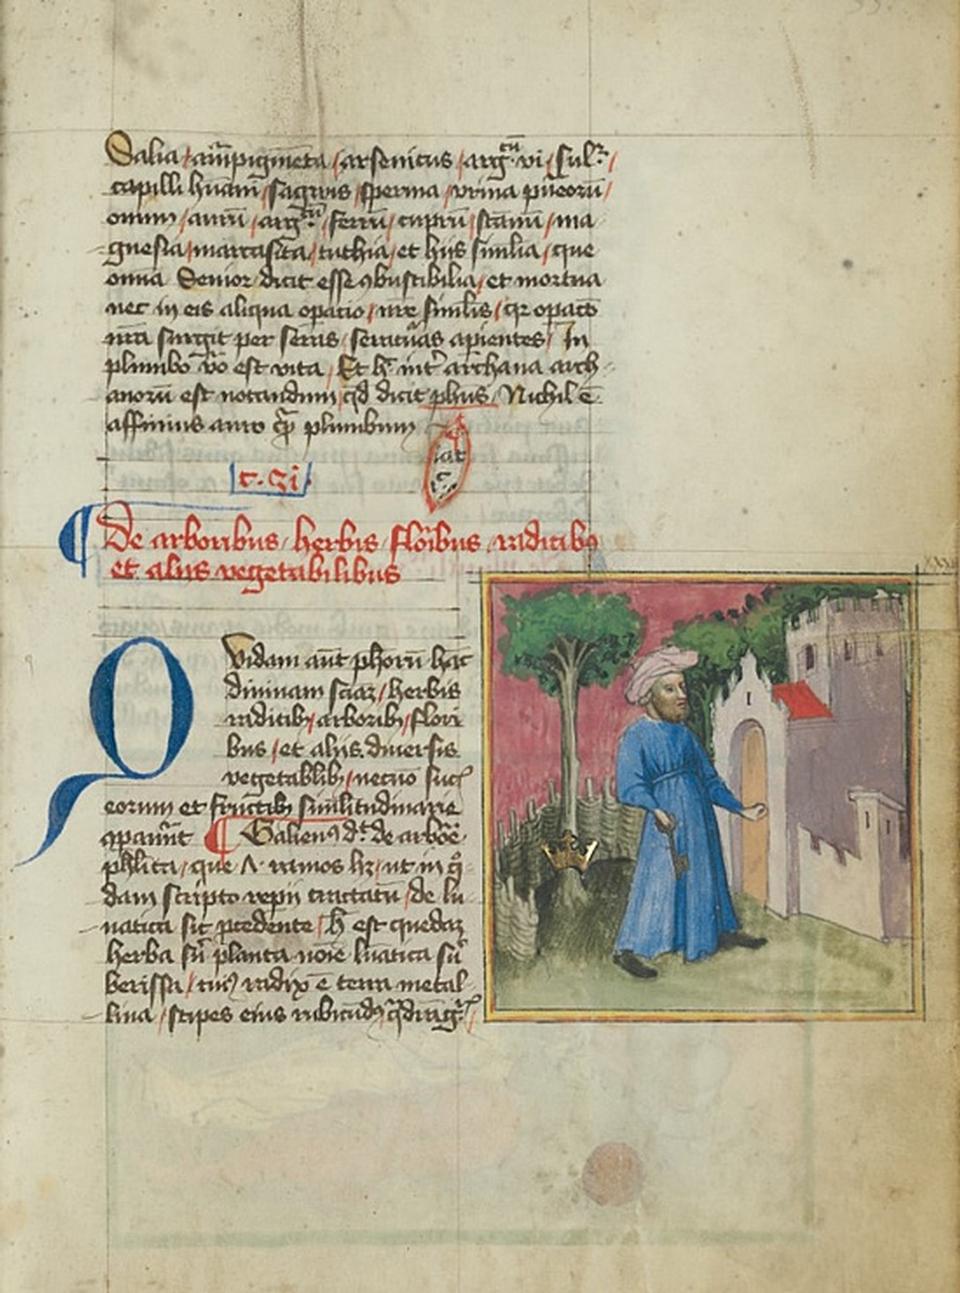 Salia / auripigmeta / arsenicus / argtu vi / sulr /
capilli humani / sagwis / sperma / vrina pueorū /
ouum / aurū / argtū / ferrū / cuprū / stanū / ma
gnesia / marcasita / tuthia / et hiis similia / que
omnia Senior dicit esse ꝯbustibilia / et mortua
nec in eis aliqua opacio / nre similis / qr opaco
nra surgit per
plumbo vo est vita / Et h int archana arch
anorū est notandum / qd dicit phus / Nichil ē
affinius auro qm plumbum
c. xi
De arboribus / herbis / floribus / radicibꝯ
et aliis vegetabilibus
Qvidam aut phorū hac
diuinam sciaz / herbis
radicib / arborib / flori
bus / et aliis diuersis
vegetablib / necno succ
eorum et fructib similitudinarie
ꝯparunt Galienꝯ dt de arbore
phica / que ramos hz / ut in q
dam scripto repii tractatu / de lu
natica sic pcedente / h est quedaz
herba su planta noie luatica su
berissa / cuiꝯ radix ē terra metal
lina / stipes eius rubicudꝯ